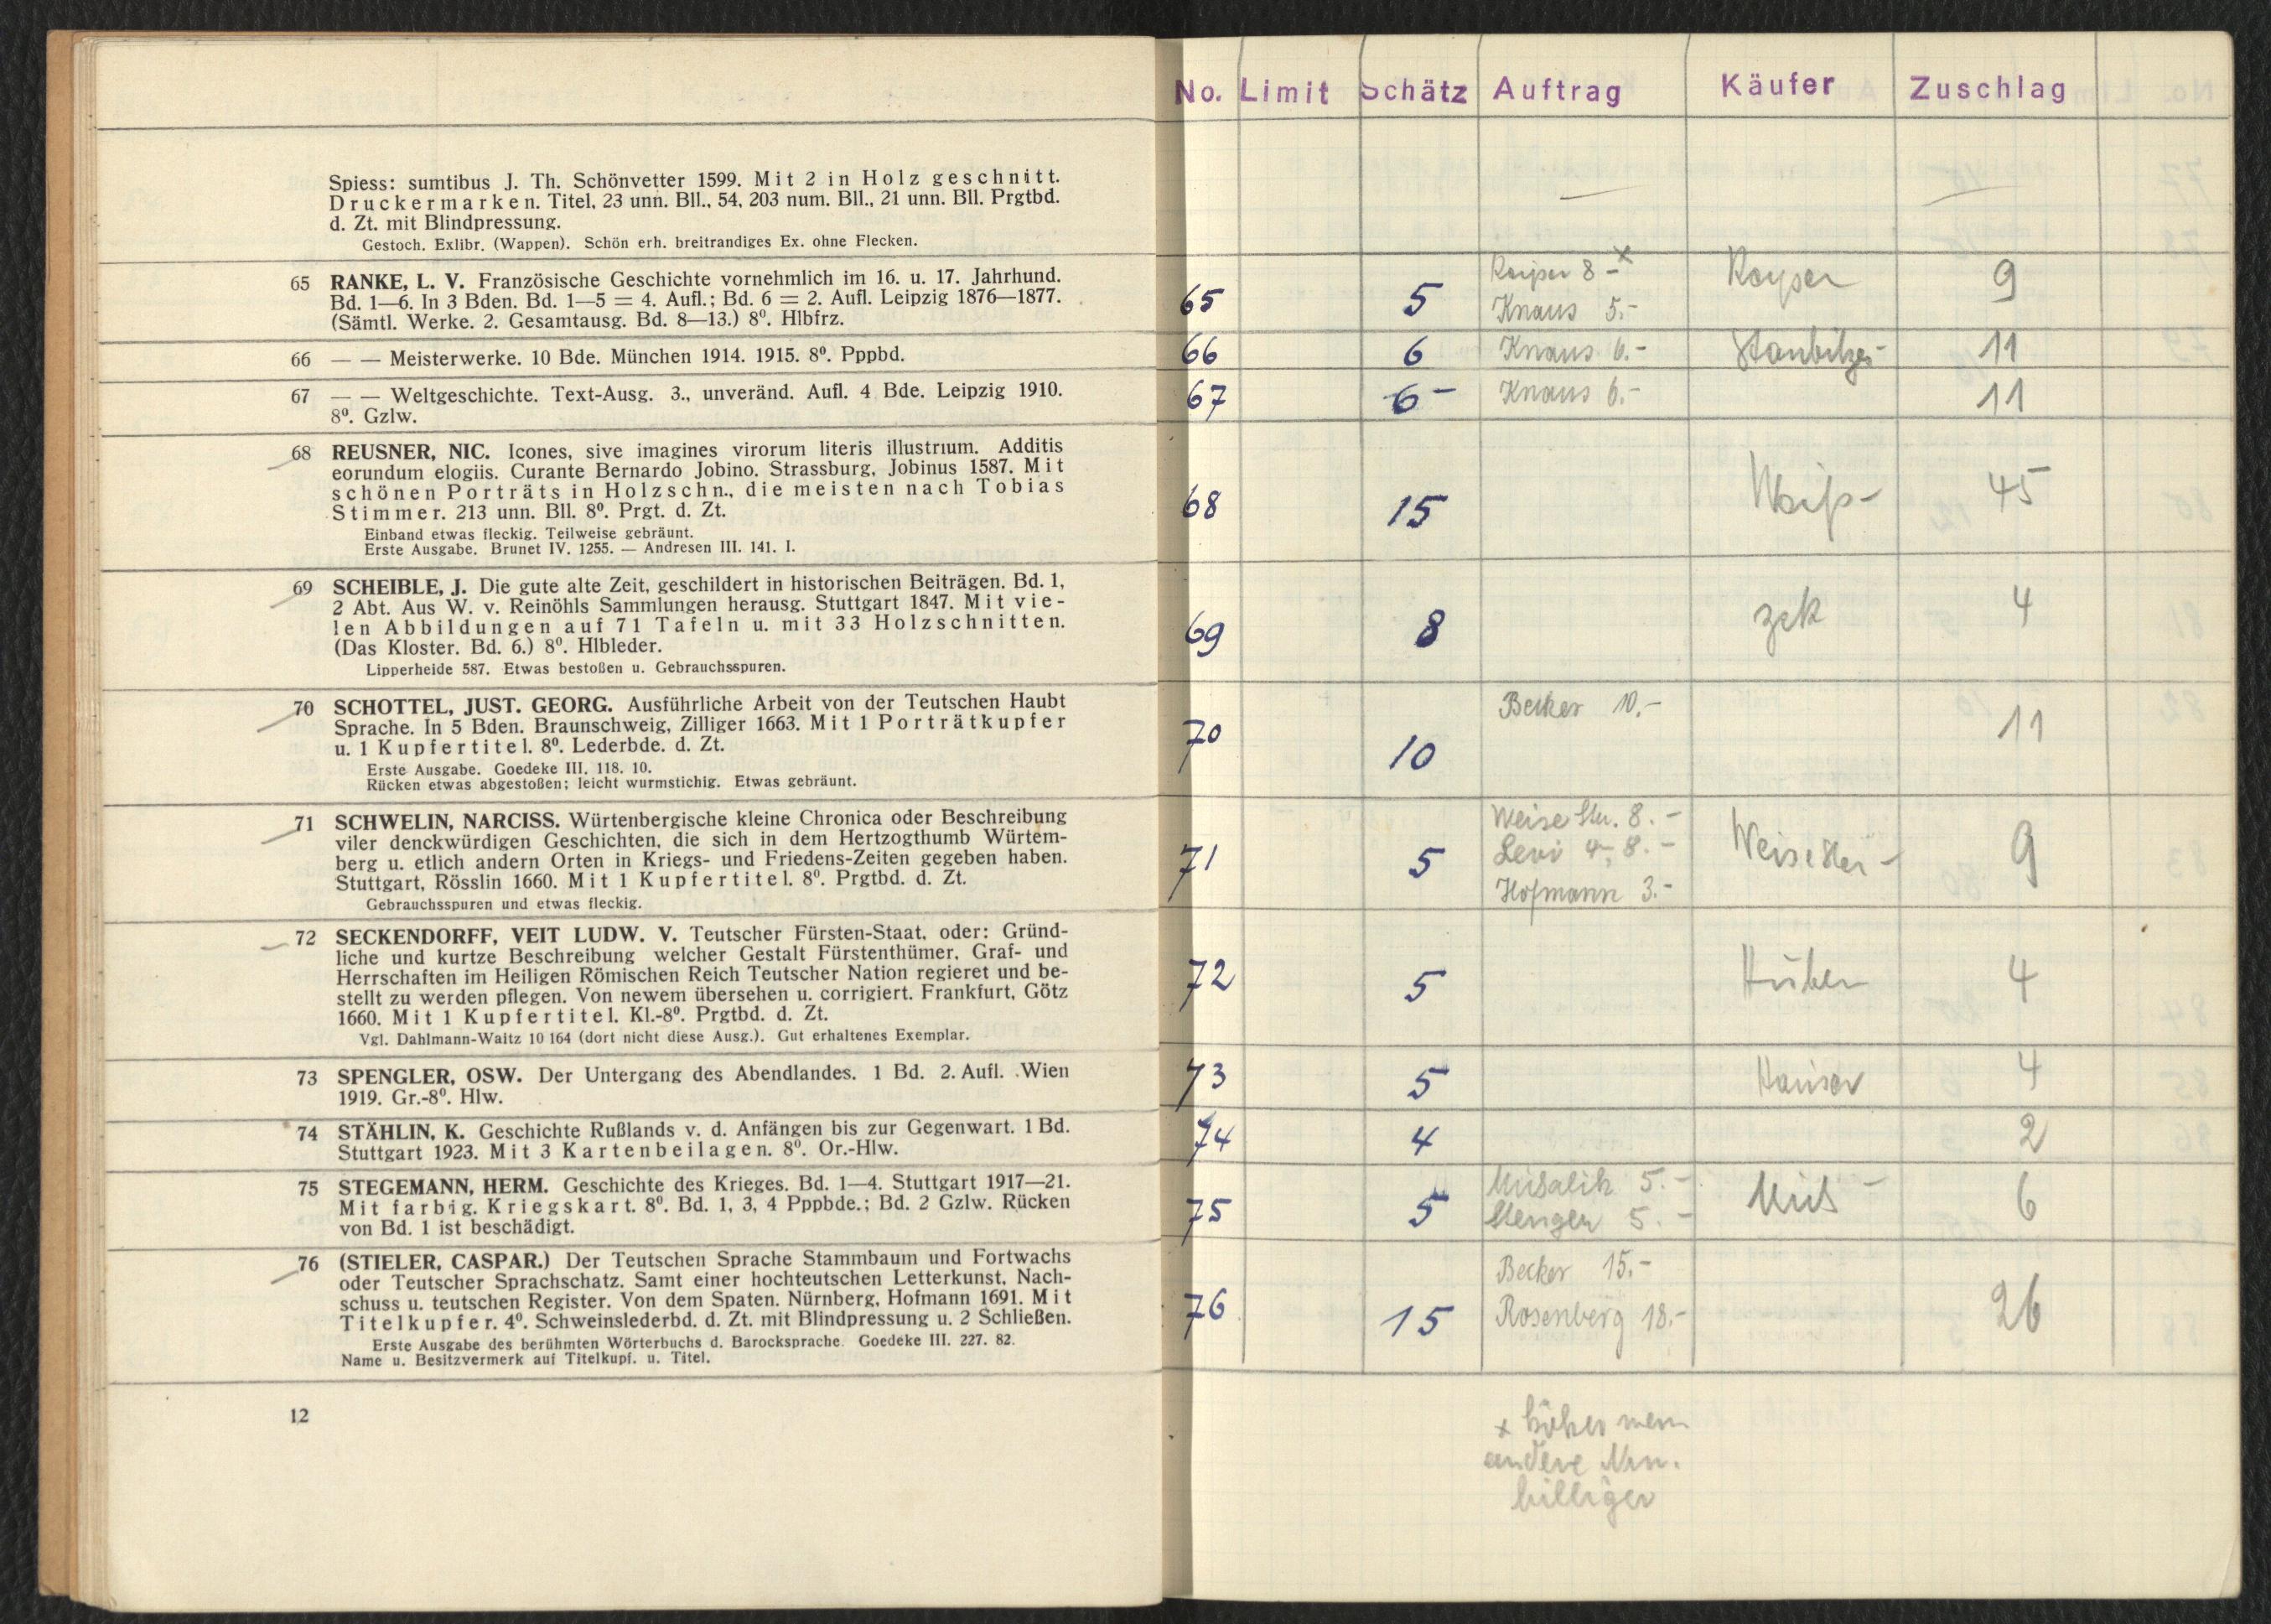 Spiess: sumtibus J. Th. Schönvetter 1599. Mit 2 in Holz geschnitt.
Druckermarken. Titel, 23 unn. Bll., 54, 203 num. Bll., 21 unn. Bll. Prgtbd.
d. Zt. mit Blindpressung.
Gestoch. Exlibr. (Wappen). Schön erh. breitrandiges Ex. ohne Flecken.
65 RANKE, L. V. Französische Geschichte vornehmlich im 16. u. 17. Jahrhund.
Bd. 1—6. In 3 Bden. Bd. 1—5 = 4. Aufl.; Bd. 6 = 2. Aufl. Leipzig 1876—1877.
(Sämtl. Werke. 2. Gesamtausg. Bd. 8—13.) 8º. Hlbfrz.
66 — — Meisterwerke. 10 Bde. München 1914. 1915. 8º. Pppbd.
67 — — Weltgeschichte. Text-Ausg. 3., unveränd. Aufl. 4 Bde. Leipzig 1910.
8º. Gzlw.
68 REUSNER, NIC. Icones, sive imagines virorum literis illustrium. Additis
eorundum elogiis. Curante Bernardo Jobino. Strassburg, Jobinus 1587. Mit
schönen Porträts in Holzschn., die meisten nach Tobias
Stimmer. 213 unn. Bll. 8º. Prgt. d. Zt.
Einband etwas fleckig. Teilweise gebräunt.
Erste Ausgabe. Brunet IV. 1255. — Andresen III. 141. I.
69 SCHEIBLE, J. Die gute alte Zeit, geschildert in historischen Beiträgen. Bd. 1,
2 Abt. Aus W. v. Reinöhls Sammlungen herausg. Stuttgart 1847. Mit vie-
len Abbildungen auf 71 Tafeln u. mit 33 Holzschnitten.
(Das Kloster. Bd. 6.) 8º. Hlbleder.
Lipperheide 587. Etwas bestoßen u. Gebrauchsspuren.
70 SCHOTTEL, JUST. GEORG. Ausführliche Arbeit von der Teutschen Haubt
Sprache. In 5 Bden. Braunschweig, Zilliger 1663. Mit 1 Porträtkupfer
u. 1 Kupfertitel. 8º. Lederbde. d. Zt.
Erste Ausgabe. Goedeke III. 118. 10.
Rücken etwas abgestoßen; leicht wurmstichig. Etwas gebräunt.
71 SCHWELIN, NARCISS. Würtenbergische kleine Chronica oder Beschreibung
viler denckwürdigen Geschichten, die sich in dem Hertzogthumb Würtem-
berg u. etlich andern Orten in Kriegs- und Friedens-Zeiten gegeben haben.
Stuttgart, Rösslin 1660. Mit 1 Kupfertitel. 8º. Prgtbd. d. Zt.
Gebrauchsspuren und etwas fleckig.
72 SECKENDORFF, VEIT LUDW. V. Teutscher Fürsten-Staat, oder: Gründ-
liche und kurtze Beschreibung welcher Gestalt Fürstenthümer, Graf- und
Herrschaften im Heiligen Römischen Reich Teutscher Nation regieret und be-
stellt zu werden pflegen. Von newem übersehen u. corrigiert. Frankfurt, Götz
1660. Mit 1 Kupfertitel. Kl.-8º. Prgtbd. d. Zt.
Vgl. Dahlmann-Waitz 10 164 (dort nicht diese Ausg.). Gut erhaltenes Exemplar.
73 SPENGLER, OSW. Der Untergang des Abendlandes. 1 Bd. 2. Aufl. Wien
1919. Gr.-8º. Hlw.
74 STÄHLIN, K. Geschichte Rußlands v. d. Anfängen bis zur Gegenwart. 1 Bd.
Stuttgart 1923. Mit 3 Kartenbeilagen. 8º. Or.-Hlw.
75 STEGEMANN, HERM. Geschichte des Krieges. Bd. 1—4. Stuttgart 1917—21.
Mit farbig. Kriegskart. 8º. Bd. 1, 3, 4 Pppbde.; Bd. 2 Gzlw. Rücken
von Bd. 1 ist beschädigt.
76 (STIELER, CASPAR.) Der Teutschen Sprache Stammbaum und Fortwachs
oder Teutscher Sprachschatz. Samt einer hochteutschen Letterkunst, Nach-
schuss u. teutschen Register. Von dem Spaten. Nürnberg, Hofmann 1691. Mit
Titelkupfer. 4º. Schweinslederbd. d. Zt. mit Blindpressung u. 2 Schließen.
Erste Ausgabe des berühmten Wörterbuchs d. Barocksprache. Goedeke III. 227. 82.
Name u. Besitzvermerk auf Titelkupf. u. Titel.
12
No. Limit Schätz Auftrag Käufer Zuschlag
Kayser 8 - x Kayser 9
65 5 Knaus 5.-
66 6 Knaus 6.- 11
67 6 - Knaus 6.- 11
68 15 Weiß - 45
69 8 zck 4
Becker 10.-
70 10 11
Weise Stu. 8.-
71 5 Levi 4-, 8.- 9
Hofmann 3.-
72 5 Huber 4
73 5 Hauser 4
74 4 2
5.-
75 5 Stenger 5.- 6
Becker 15.-
76 15 Rosenberg 18.- 26
x höher wenn
andere Nrn.
billiger